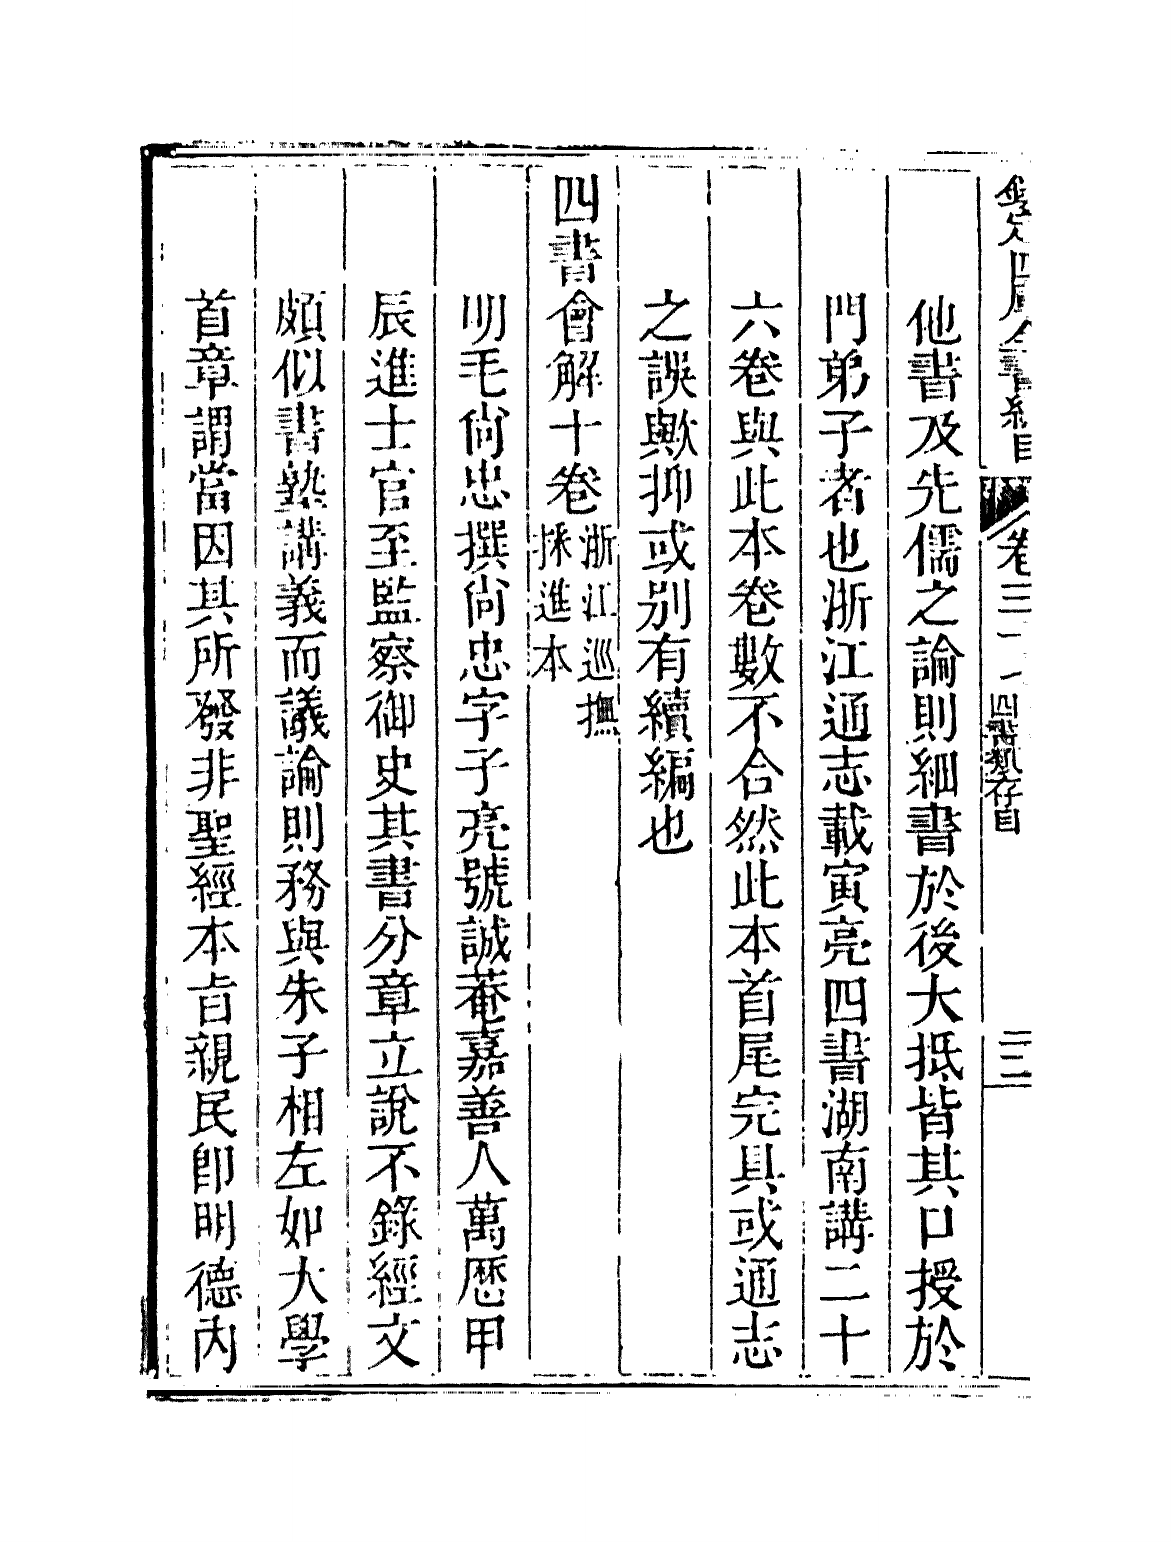 欽定四庫全書總目 卷三 四書類存目
他書及先儒之論則細書於後大抵皆其口授於
門弟子者也浙江通志載寅亮四書湖南講二十
六卷與此本卷數不合然此本首尾完具或通志
之誤歟抑或別有續編也
四書會解十卷 浙江巡撫
採進本
明毛尚忠撰尚忠字子亮號誠菴嘉善人萬歷甲
辰進士官至監察御史其書分章立說不錄經文
頗似書塾講義而議論則務與朱子相左如大學
首章謂當因其所發非聖經本旨親民卽明德內